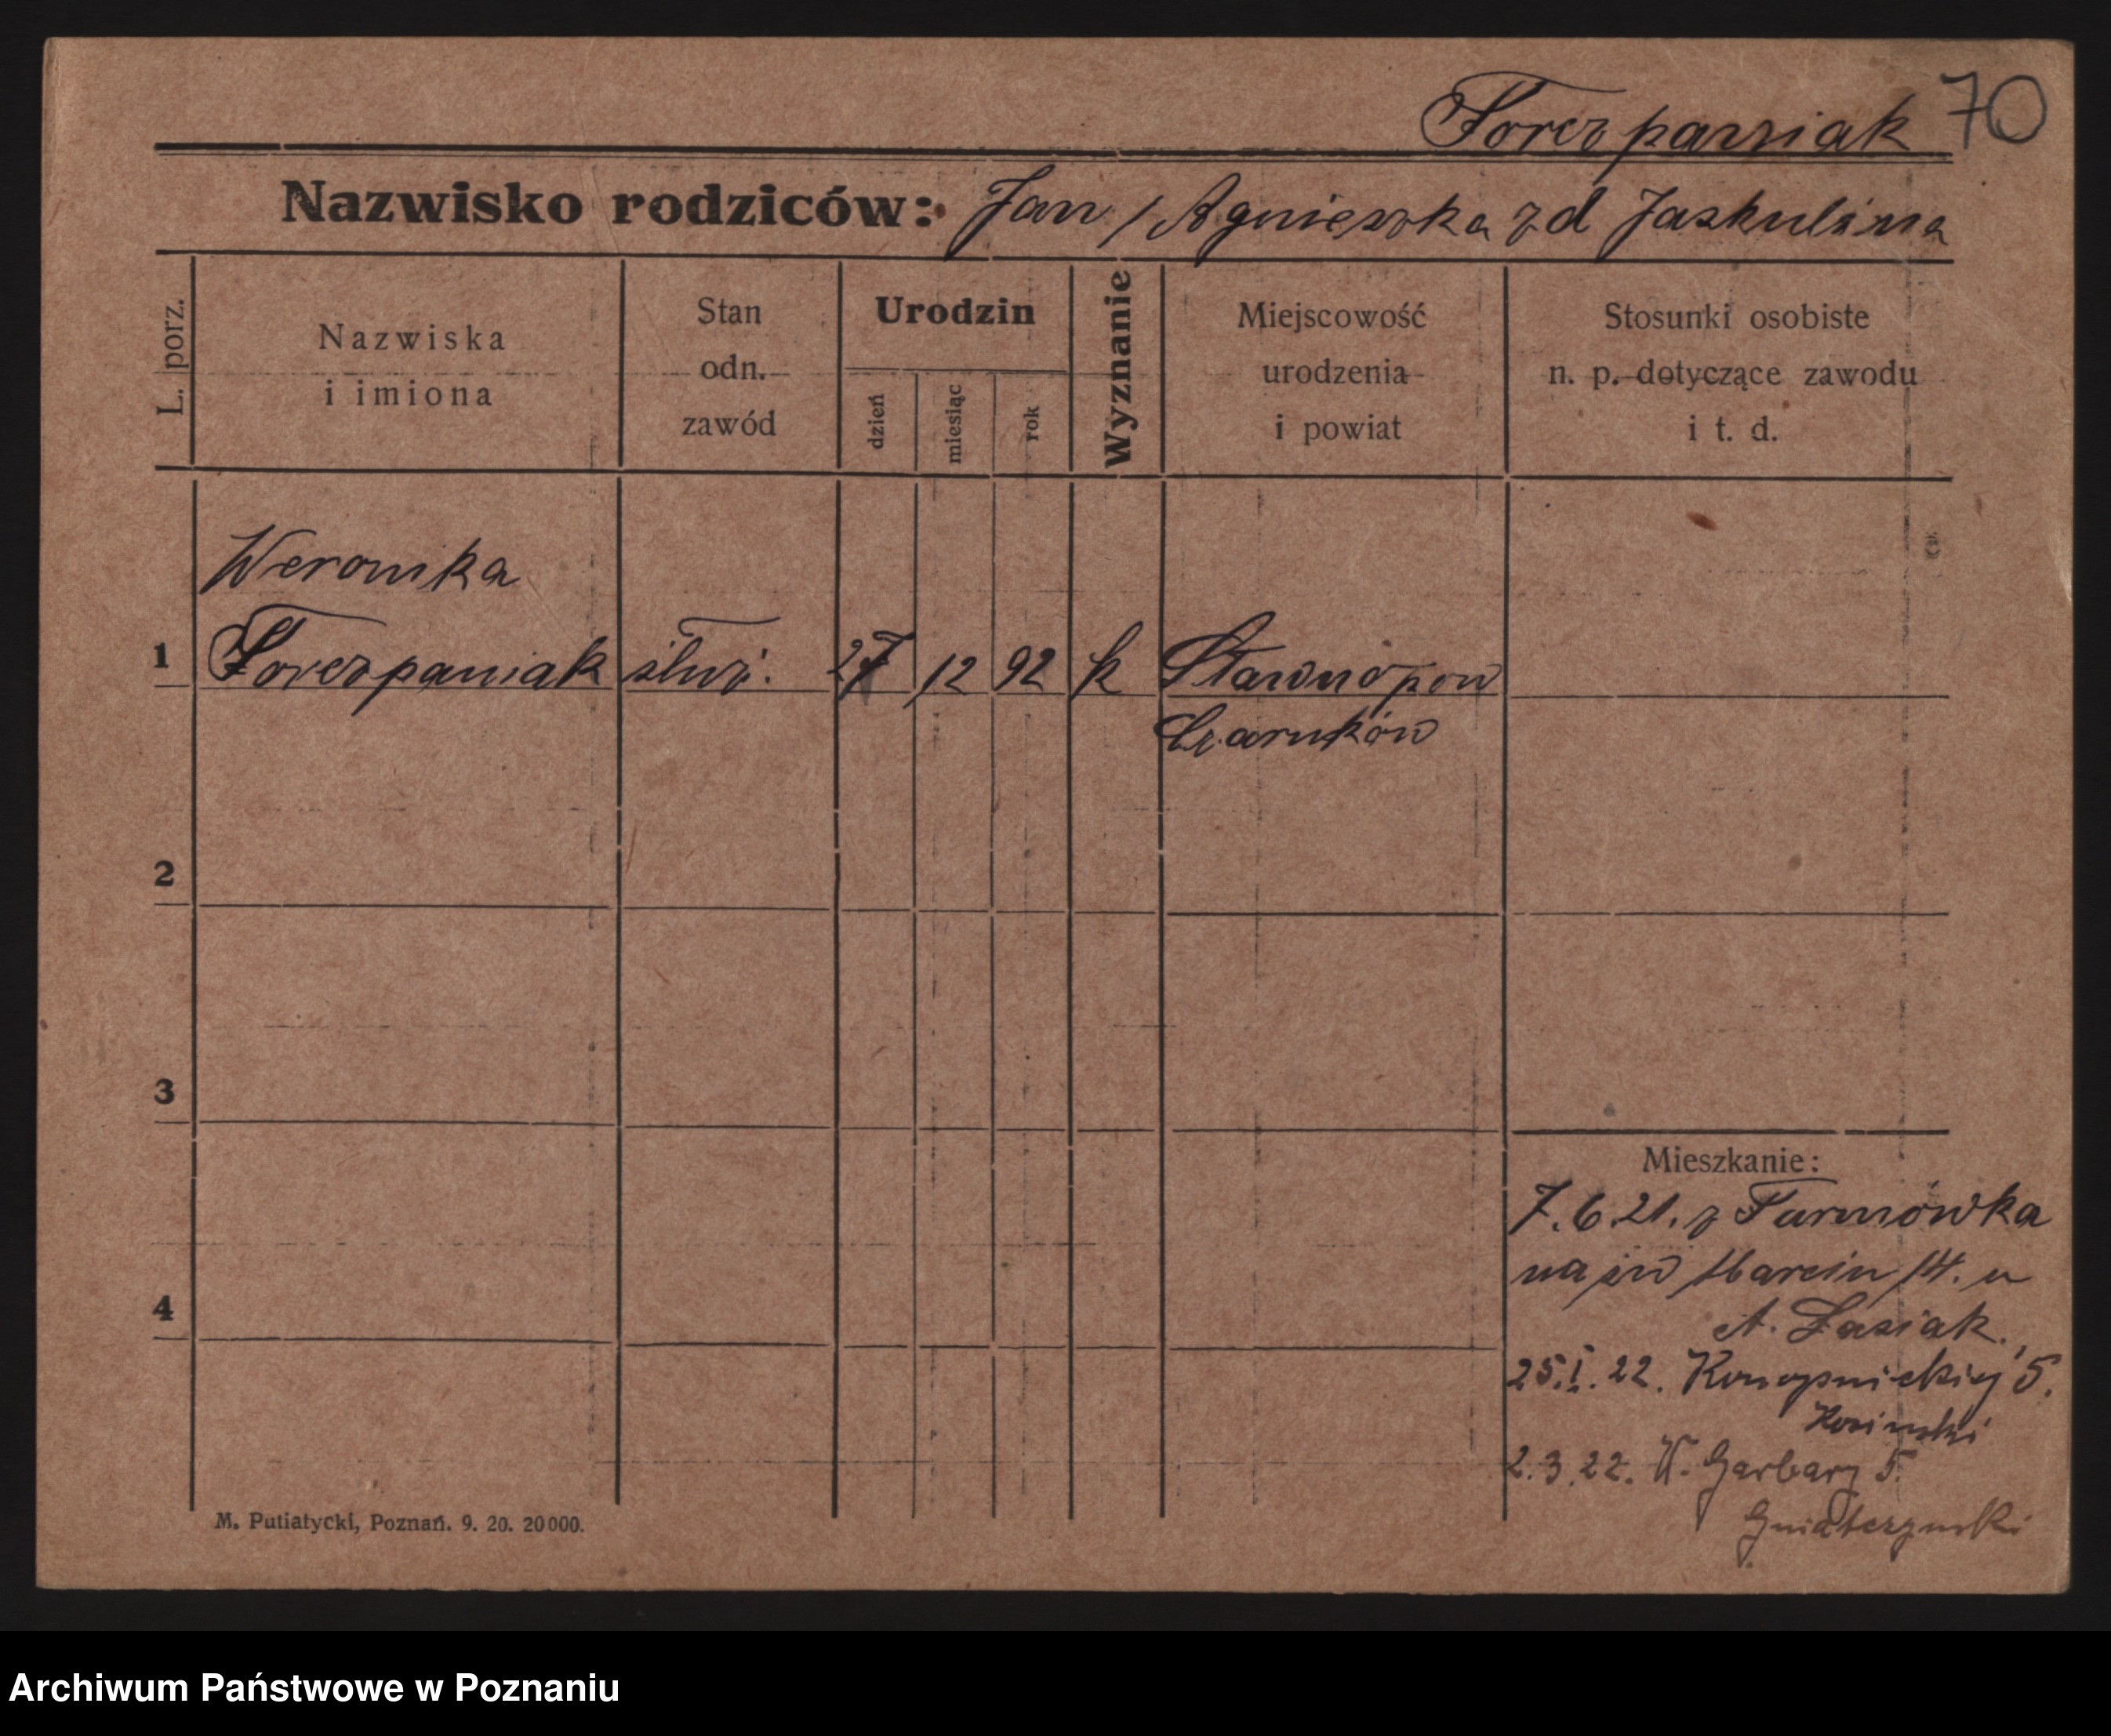 70
Torczpaniak
Nazwisko rodziców: Jan / Agnieszka zd Jaskulina
L. porz.
Nazwiska
i imiona
Stan
odn.
zawód
Urodzin
dzień
miesiąc
rok
Wyznanie
Miejscowość
urodzenia
i powiat
Stosunki osobiste
n. p. dotyczące zawodu
i t. d.
Weronika
1 Torczpaniak służ. 27 12 92 k Sławno pow
Czarnków
2
3
4
Mieszkanie:
7.6.21. z Tarnówka
na św Marcin 14. u
A. Łasiak.
25.I.22. Konopnickiej 5.
Kosinski
2.3.22. W. Garbary 5.
M. Putiatycki, Poznań. 9. 20. 20000.
Archiwum Państwowe w Poznaniu